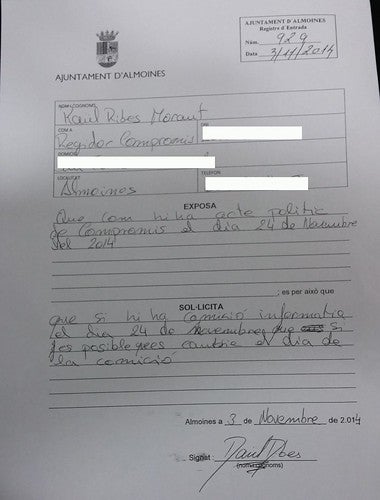 AJUNTAMENT D'ALMOINES
Registre d'Entrada
Núm. 929
Data 3/11/2014
AJUNTAMENT D'ALMOINES
NOM I COGNOMS
Raul Ribes Moraut
COM A
Regidor Compromis
DNI
DOMICILI
LOCALITAT
Almoines
TELEFON
EXPOSA
Que com hi ha acte politic
de Compromis el dia 24 de Novembre
del 2014
, es per això que
SOL·LICITA
que si hi ha comissió informativa
el dia 24 de Novembre que si
es posible es cambie el dia de
la comisió
Almoines a 3 de Novembre de 2.014
Signat:
(nom i cognoms)